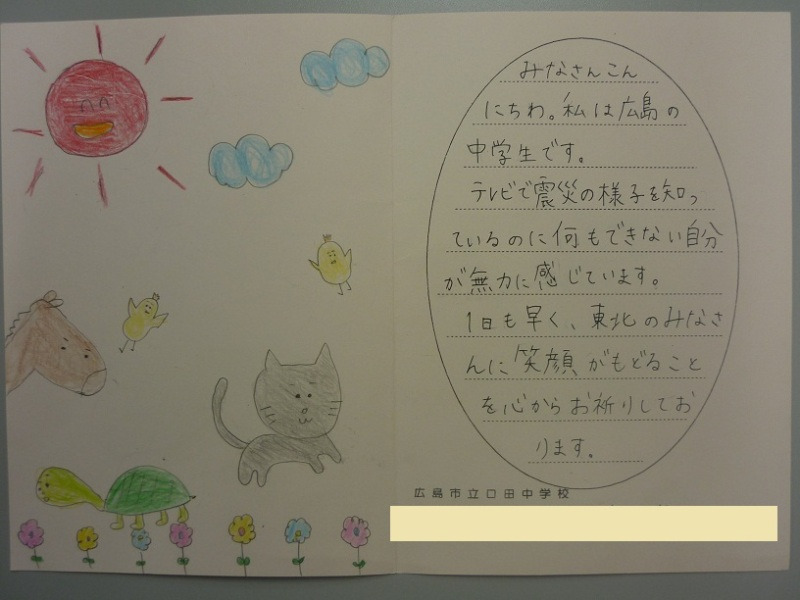 みなさんこん
にちわ。私は広島の
中学生です。
テレビで震災の様子を知っ
ているのに何もできない自分
が無力に感じています。
1日も早く、東北のみなさ
んに笑顔がもどること
を心からお祈りしてお
ります。
広島市立口田中学校